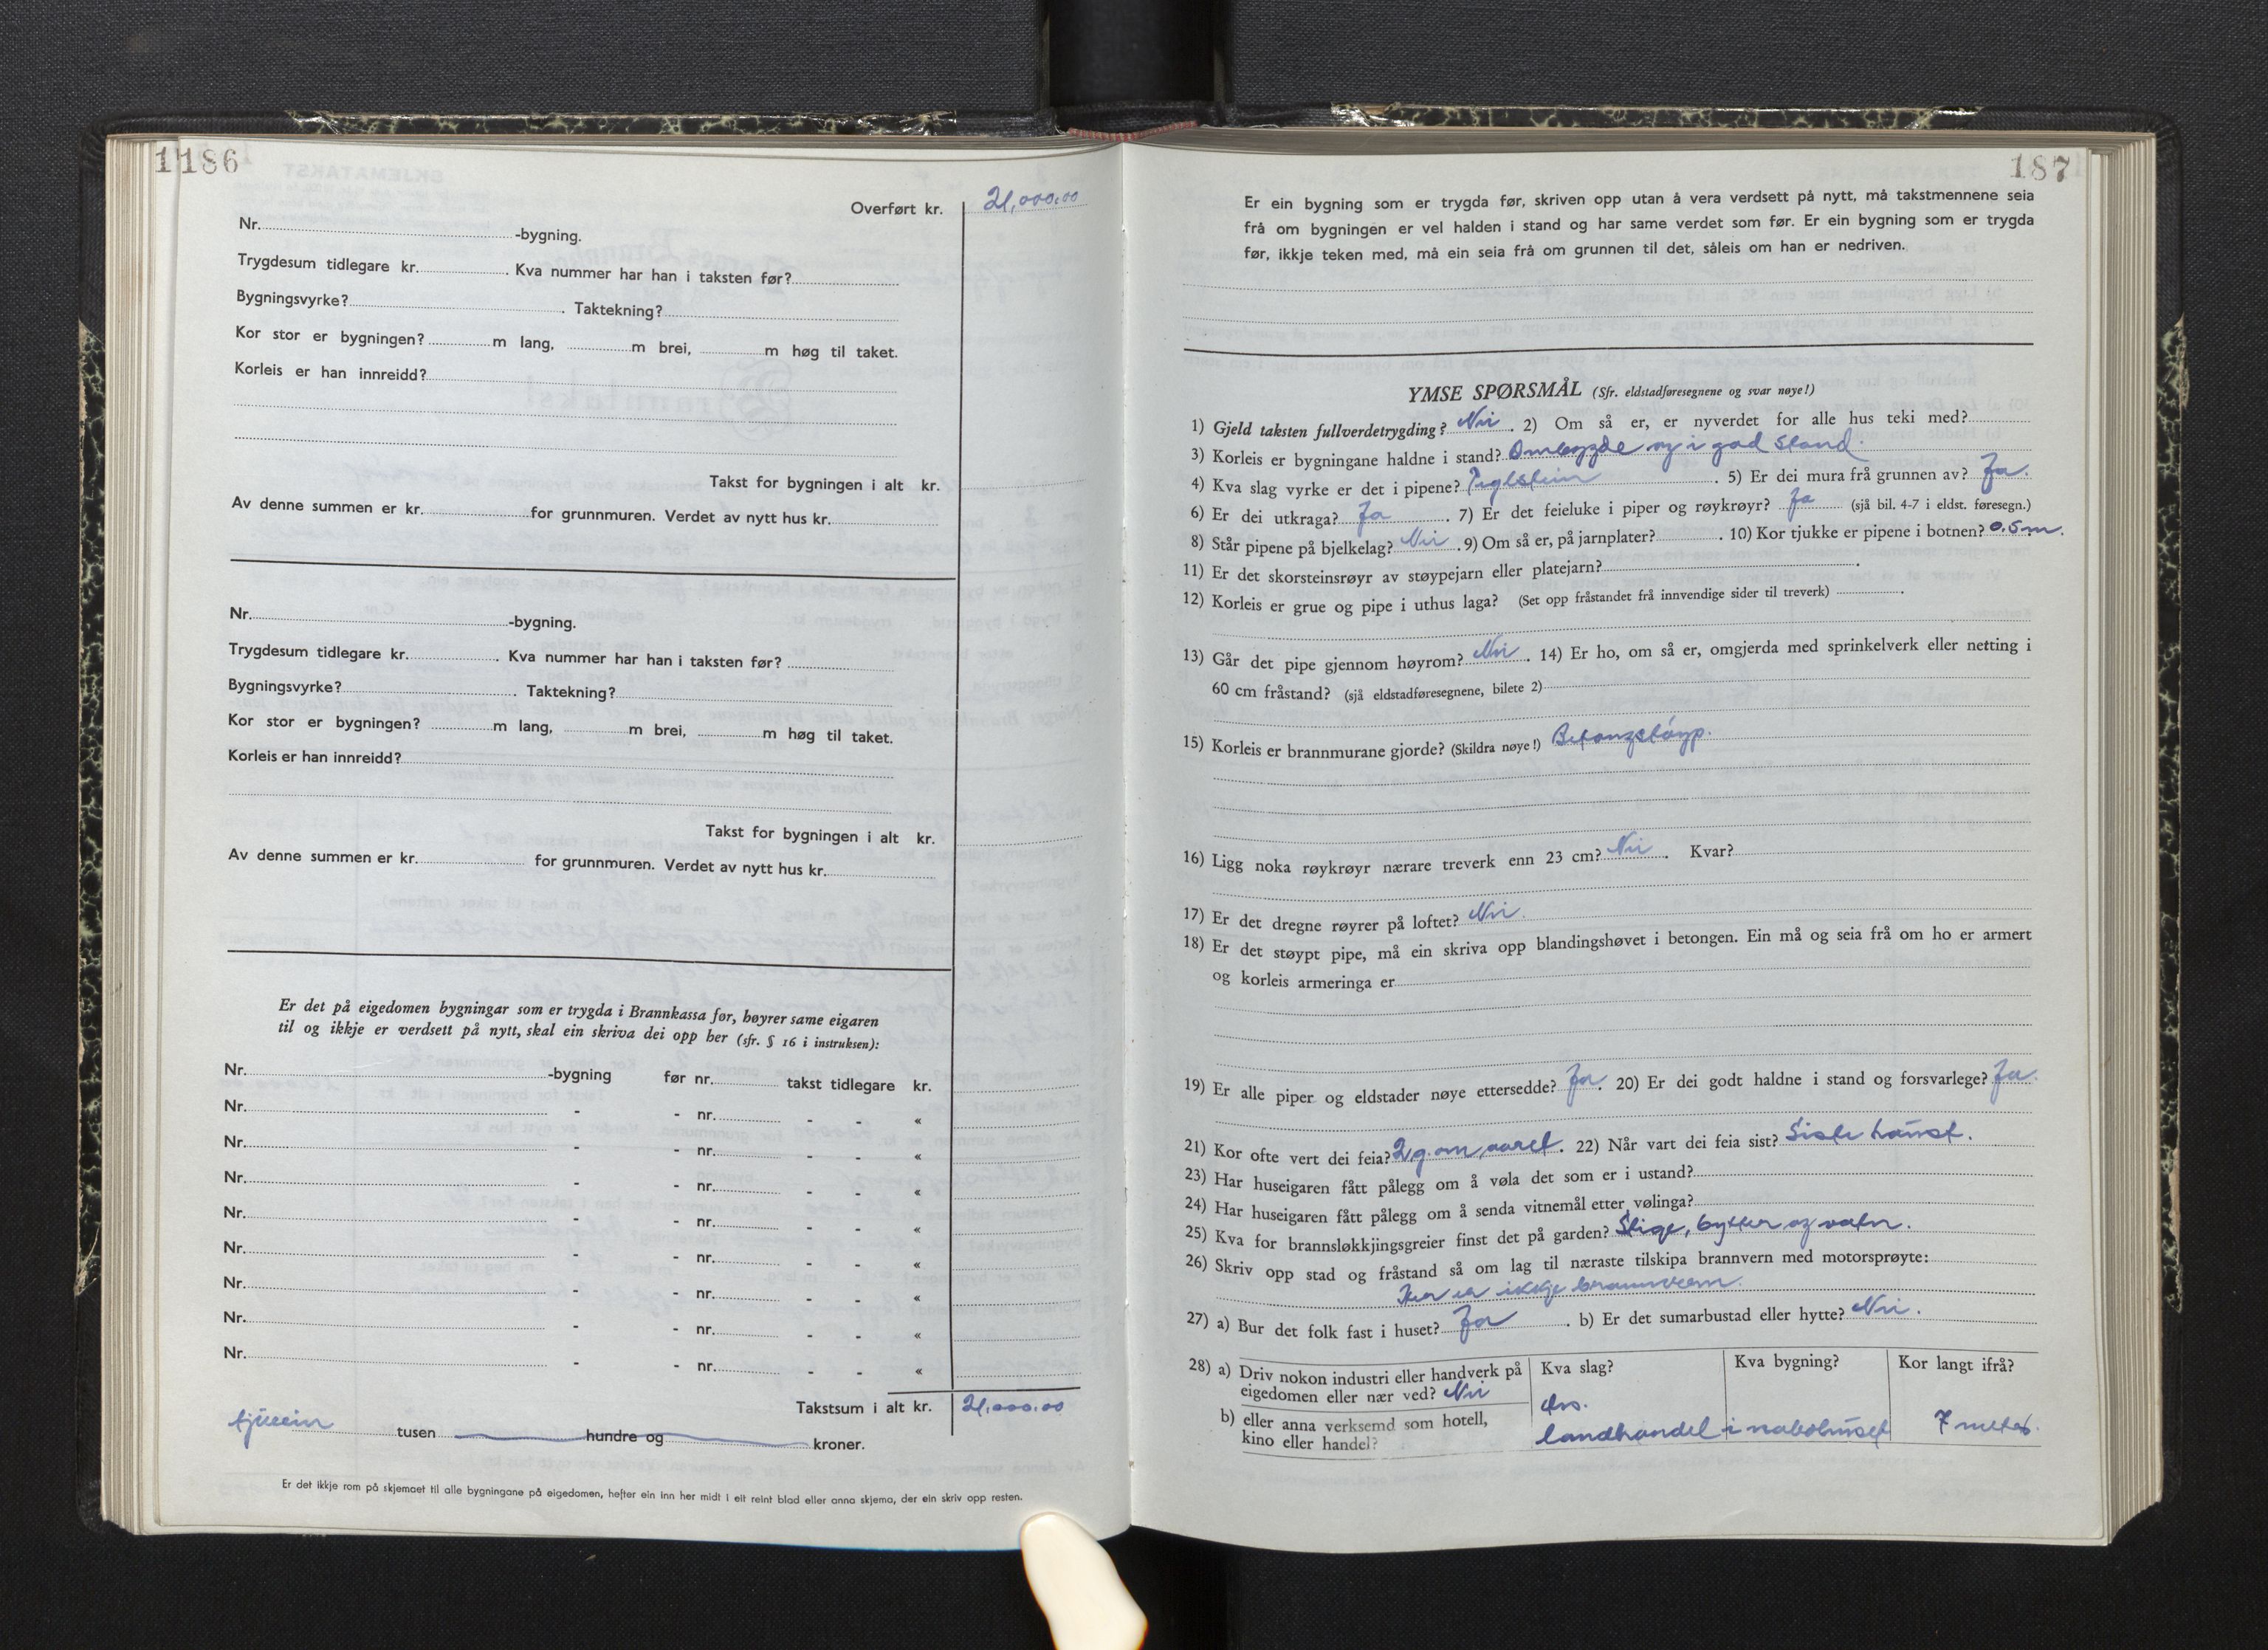 186
Overført kr. 21,000.00
Nr. -bygning.
Trygdesum tidlegare kr. . Kva nummer har han i taksten før?
Bygningsvyrke? . Taktekning?
Kor stor er bygningen? m lang, m brei, m høg til taket.
Korleis er han innreidd?
Takst for bygningen i alt kr.
Av denne summen er kr. for grunnmuren. Verdet av nytt hus kr.
Nr. -bygning.
Trygdesum tidlegare kr. . Kva nummer har han i taksten før?
Bygningsvyrke? . Taktekning?
Kor stor er bygningen? m lang, m brei, m høg til taket.
Korleis er han innreidd?
Takst for bygningen i alt kr.
Av denne summen er kr. for grunnmuren. Verdet av nytt hus kr.
Er det på eigedomen bygningar som er trygda i Brannkassa før, høyrer same eigaren
til og ikkje er verdsett på nytt, skal ein skriva dei opp her (sfr. § 16 i instruksen):
Nr. -bygning før nr. takst tidlegare kr.
Nr. - - nr. - - «
Nr. - - nr. - - «
Nr. - - nr. - - «
Nr. - - nr. - - «
Nr. - - nr. - - «
Nr. - - nr. - - «
Nr. - - nr. - - «
Nr. - - nr. - - «
Takstsum i alt kr. 21.000.00
tjueein tusen hundre og kroner.
Er det ikkje rom på skjemaet til alle bygningane på eigedomen, hefter ein inn her midt i eit reint blad eller anna skjema, der ein skriv opp resten.
187
Er ein bygning som er trygda før, skriven opp utan å vera verdsett på nytt, må takstmennene seia
frå om bygningen er vel halden i stand og har same verdet som før. Er ein bygning som er trygda
før, ikkje teken med, må ein seia frå om grunnen til det, såleis om han er nedriven.
YMSE SPØRSMÅL (Sfr. eldstadføresegnene og svar nøye!)
1) Gjeld taksten fullverdetrygding? Nei . 2) Om så er, er nyverdet for alle hus teki med?
3) Korleis er bygningane haldne i stand? Ombygde og i god stand.
4) Kva slag vyrke er det i pipene? Teglstein . 5) Er dei mura frå grunnen av? Ja.
6) Er dei utkraga? Ja . 7) Er det feieluke i piper og røykrøyr? Ja (sjå bil. 4-7 i eldst. føresegn.)
8) Står pipene på bjelkelag? Nei . 9) Om så er, på jarnplater? . 10) Kor tjukke er pipene i botnen? 0.5 m.
11) Er det skorsteinsrøyr av støypejarn eller platejarn? .
12) Korleis er grue og pipe i uthus laga? (Set opp fråstandet frå innvendige sider til treverk) .
13) Går det pipe gjennom høyrom? Nei . 14) Er ho, om så er, omgjerda med sprinkelverk eller netting i
60 cm fråstand? (sjå eldstadføresegnene, bilete 2)
15) Korleis er brannmurane gjorde? (Skildra nøye!) Betongstøyp.
16) Ligg noka røykrøyr nærare treverk enn 23 cm? Nei . Kvar?
17) Er det dregne røyrer på loftet? Nei.
18) Er det støypt pipe, må ein skriva opp blandingshøvet i betongen. Ein må og seia frå om ho er armert
og korleis armeringa er
19) Er alle piper og eldstader nøye ettersedde? Ja . 20) Er dei godt haldne i stand og forsvarlege? Ja.
21) Kor ofte vert dei feia? 2 g. om aaret . 22) Når vart dei feia sist? Siste haust.
23) Har huseigaren fått pålegg om å vøla det som er i ustand?
24) Har huseigaren fått pålegg om å senda vitnemål etter vølinga?
25) Kva for brannsløkkjingsgreier finst det på garden? Stige, bytter og vatn.
26) Skriv opp stad og fråstand så om lag til næraste tilskipa brannvern med motorsprøyte:
Her er ikkje brannvern.
27) a) Bur det folk fast i huset? Ja . b) Er det sumarbustad eller hytte? Nei.
28) a) Driv nokon industri eller handverk på Kva slag? Kva bygning? Kor langt ifrå?
eigedomen eller nær ved? Nei
b) eller anna verksemd som hotell,
kino eller handel? landhandel i nabohuset 7 meter.